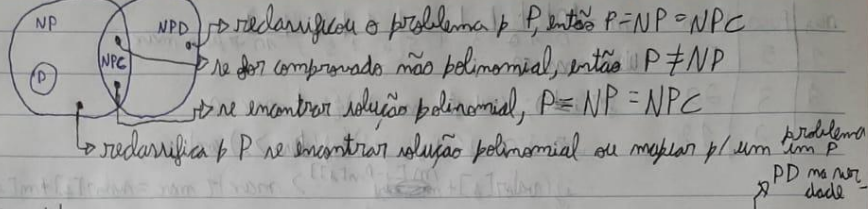 NP NPD → reclassificou o problema p P, então P=NP=NPC
NPC → se for comprovado não polinomial, então P≠NP
P → se encontrar solução polinomial, P=NP=NPC
↳ reclassifica p P se encontrar solução polinomial ou mapear p/ um problema em P
PD na ver-
dade